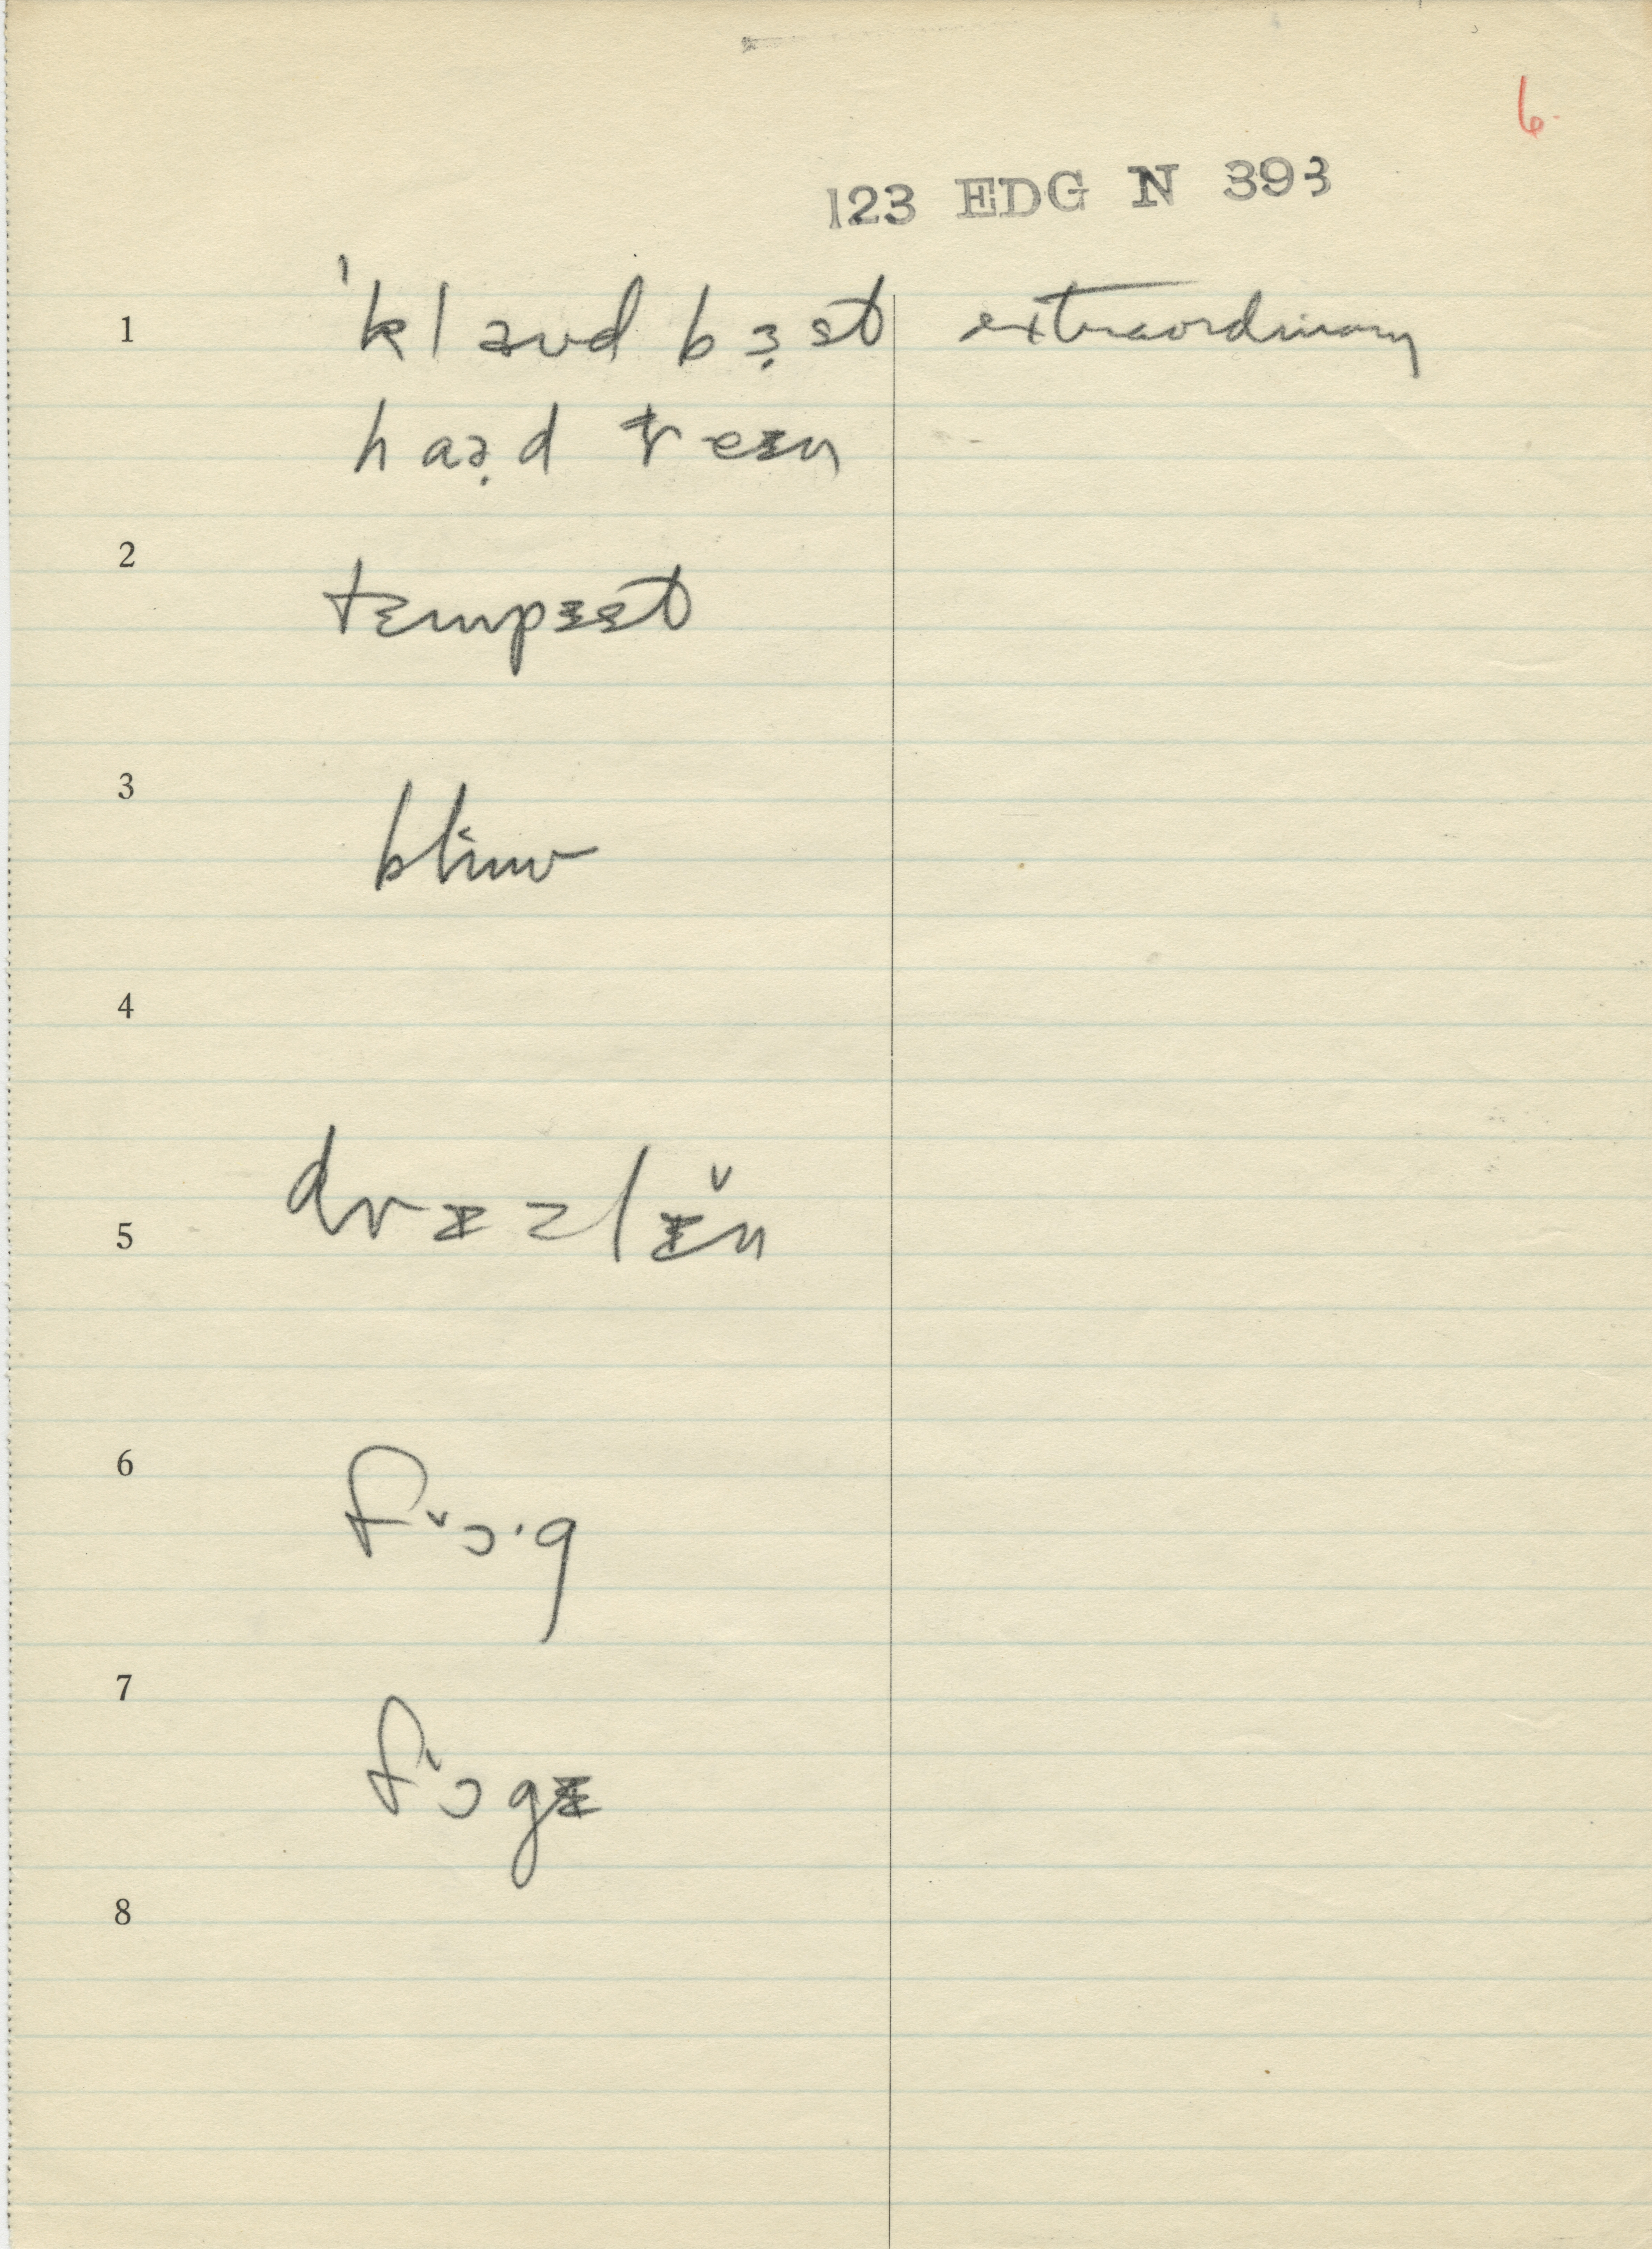 6
123 EDG N 393
1 ˈklaʊd bɜ̣st extraordinary
haə̣d reɪn
2
tempɪst
3
blinv
4
drɪzlɪ̌n
5
6
fˇɔ·g
7
fˈɔgɪ
8